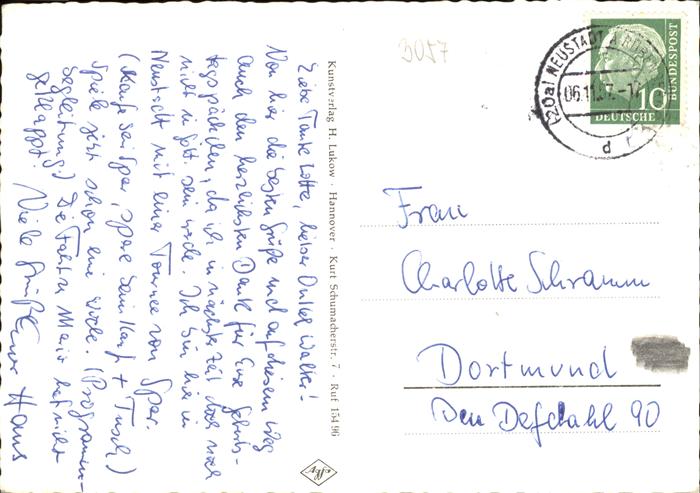 3057
(20a) NEUSTADT A RÜB
06.11.57.-1
d
DEUTSCHE
BUNDESPOST
10
Liebe Tante Lotte, lieber Onkel Walter!
Von hier die besten Grüße und auf diesem Weg
auch den herzlichsten Dank für Eure Geburts-
tags, da ich in nächster Zeit doch noch
nicht in sein werde. Ich bin hier in
Neustadt mit einer Tournee von Spar.
(Kaufe bei Spar, spare beim Kauf + Tusch)
Spiele jetzt schon eine Woche. (Programm-
begleitung) Die Fahrt n. Mainz hat nicht
geklappt! Viele Grüße Euer Hans
Kunstverlag H. Lukow · Hannover · Kurt Schumacherstr. 7 · Ruf 15496
Agfa
Frau
Charlotte Schramm
Dortmund
Den Defdahl 90